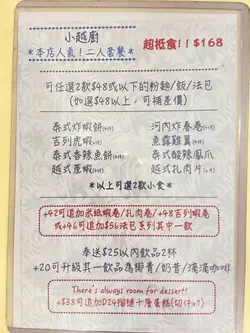 小越廚
*本店人氣!二人套餐*
超抵食!! $168
可任選2款$48或以下的粉麵/飯/法包
(如選$48以上,可補差價)
泰式炸蝦餅
河內炸春卷
吉列虎蝦
魚露雞翼
泰式香辣魚餅
泰式酸辣鳳爪
越式蔗蝦
越式扎肉片
*以上可選2款小食*
+42可追加米紙蝦卷/扎肉卷/+48吉列蝦卷
或+46可追加$56法包系列其中一款
泰送$25以內飲品2杯
+20可升級其一飲品為獨青/奶昔/滴滴咖啡
There's always room for dessert!
+$38可追加D24榴槤千層蛋糕(切件x1)